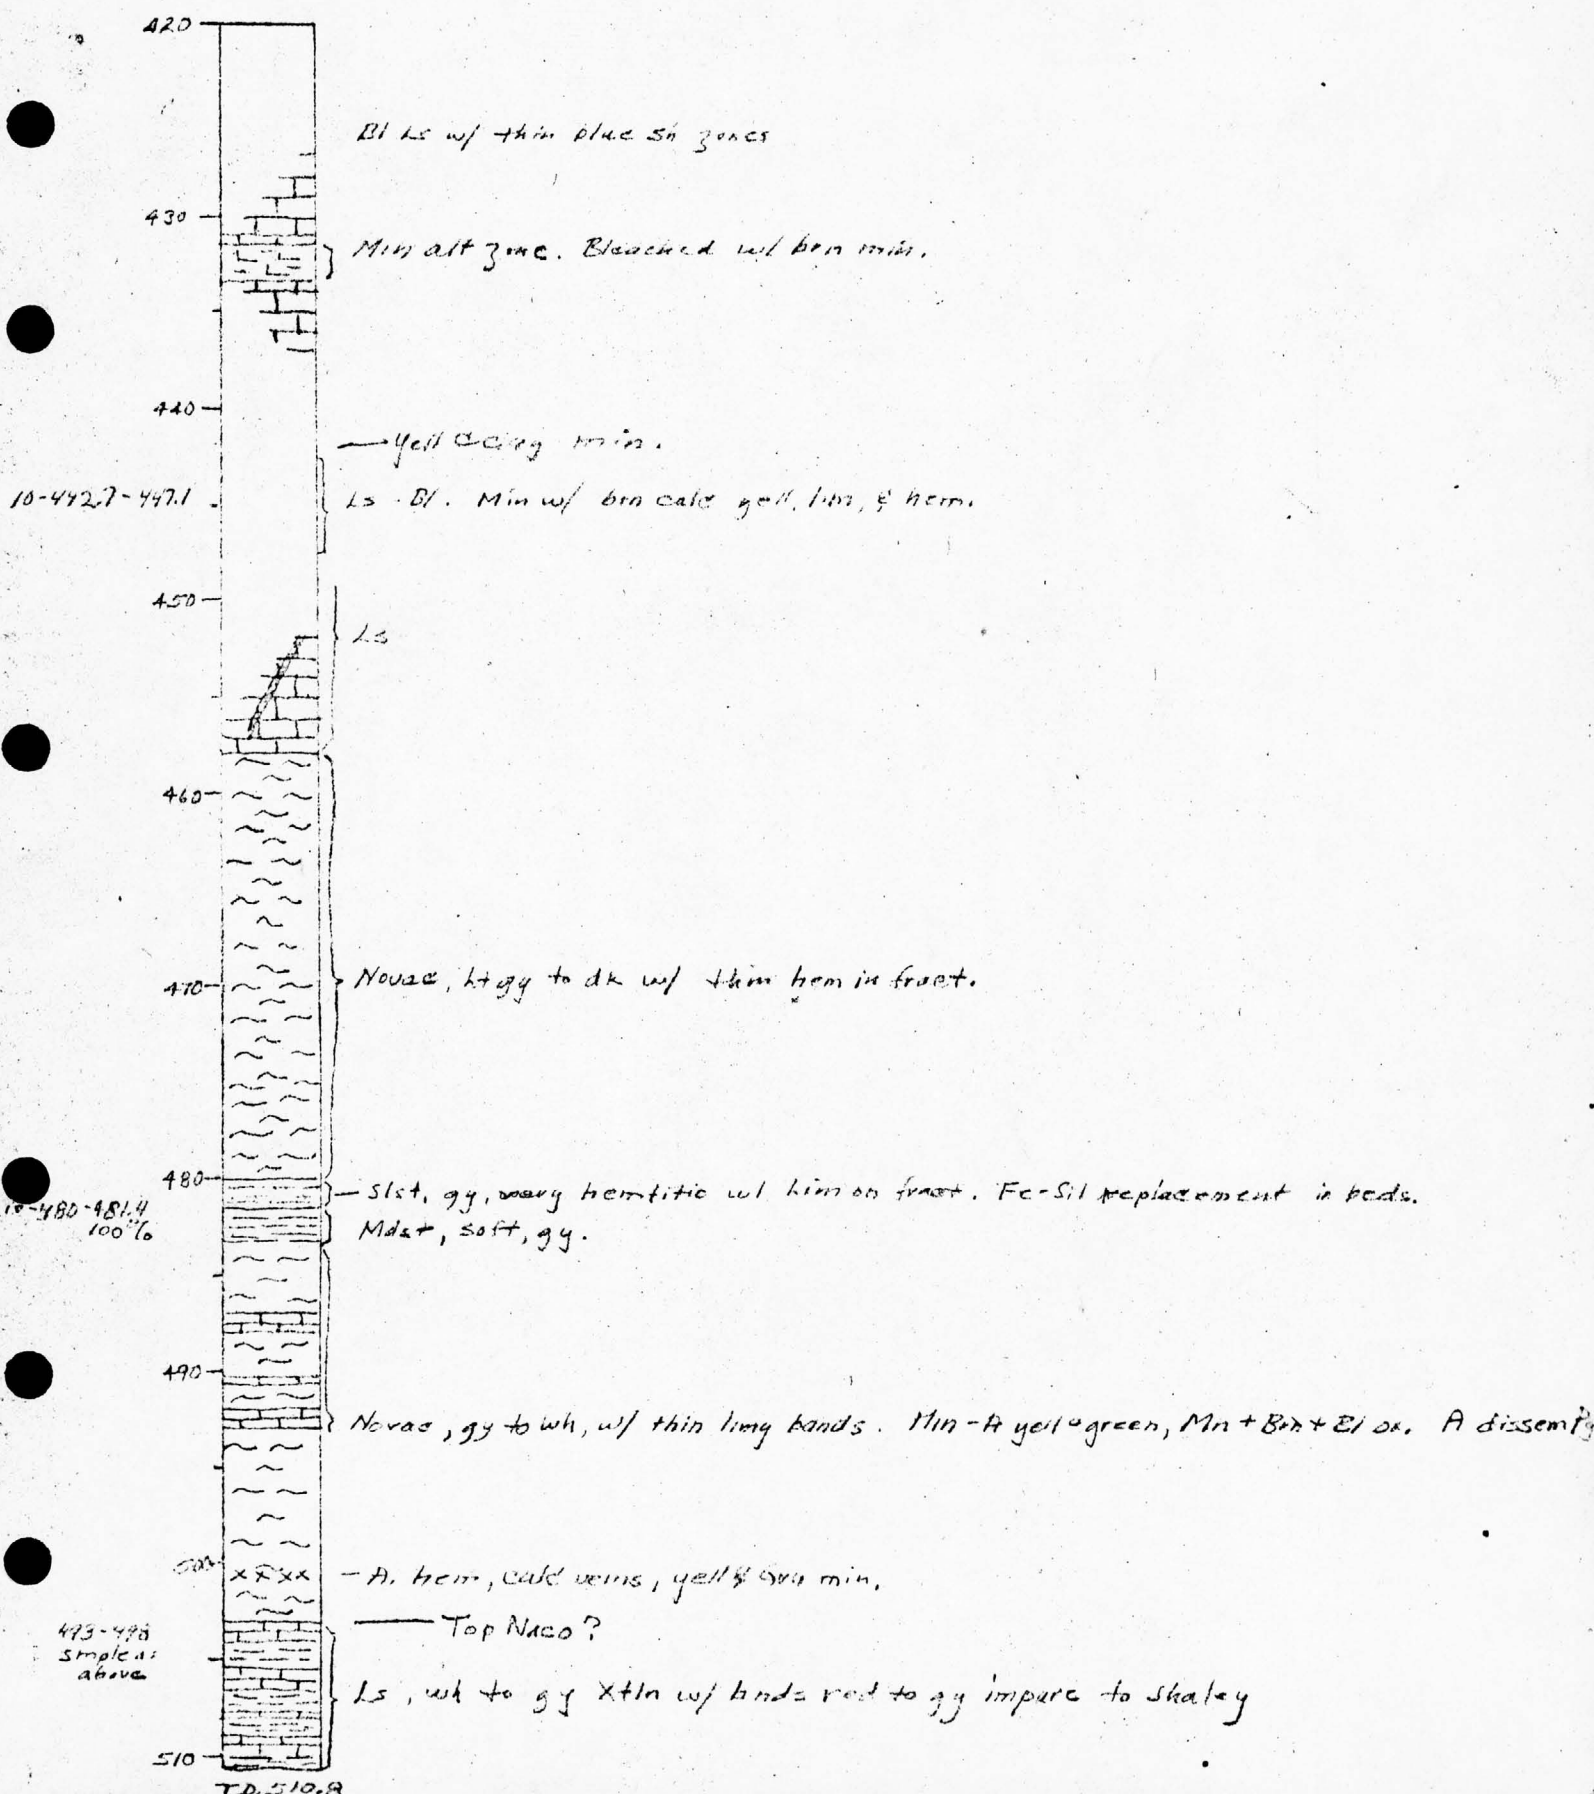 420
Bl Ls w/ thin blue sh zones
430
Min alt zone. Bleached w/ brn min.
440
Yell min.
10-442.7-447.1
Ls Bl. Min w/ brn calc yell, lim, & hem.
450
Ls
460
470
Novac, lt gy to dk w/ thin hem in fract.
480
Slst, gy, very hemtitic w/ lim on fract. Fe-Sil replacement in beds.
10-480-481.4
100%
Mdst, soft, gy.
490
Novac, gy to wh, w/ thin limy bands. Min - A yell green, Mn + Brn + Bl ox. A dissem
500
xxxx
- A. hem, calc veins, yell & min.
Top Naco?
493-498
smple as
above
Ls, wh to gy Xtln w/ bnds red to gy impure to shaley
510
T.D. 510.8